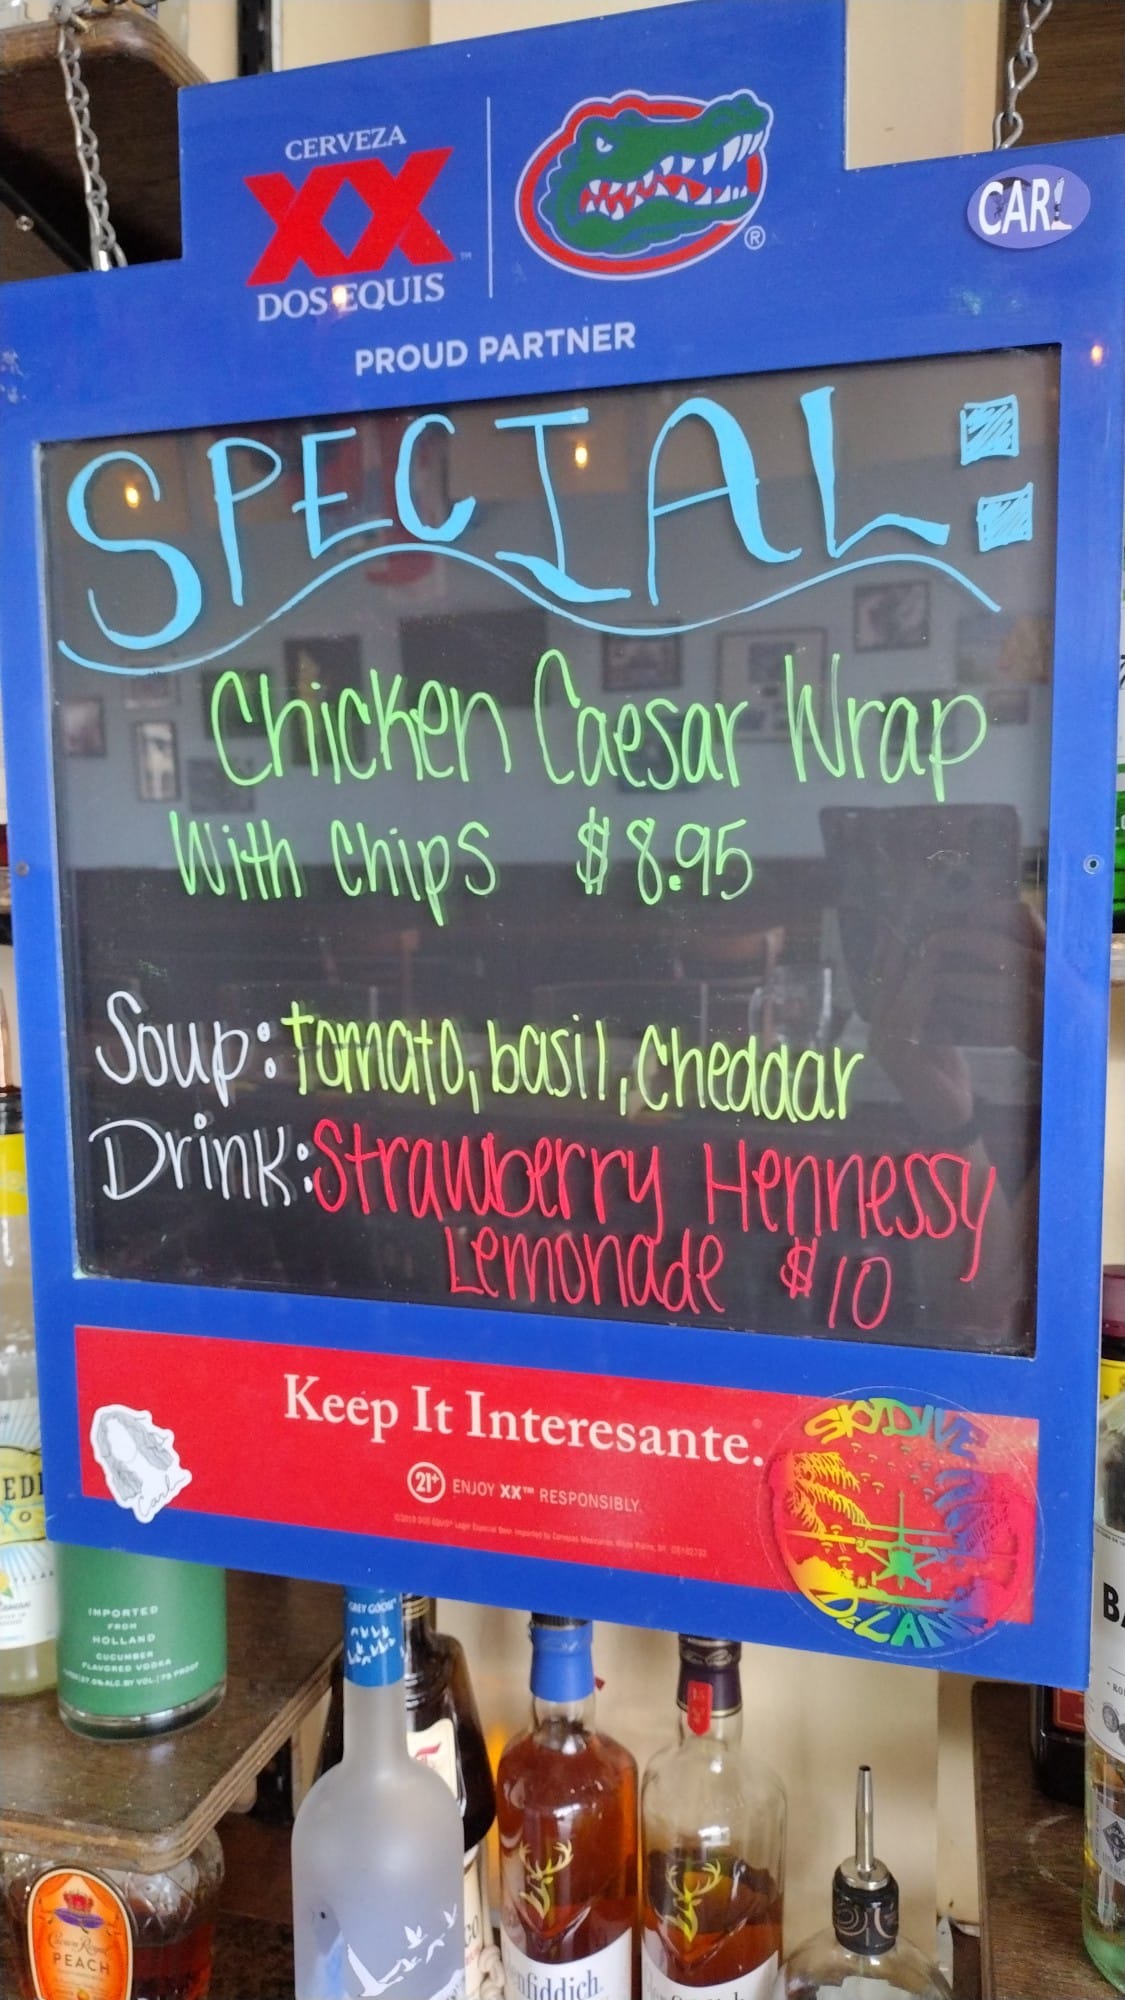 CERVEZA
XX™
DOS EQUIS
®
CARL
PROUD PARTNER
SPECIAL:
Chicken Caesar Wrap
With Chips $8.95
Soup: tomato, basil, Cheddar
Drink: Strawberry Hennessy
Lemonade $10
Keep It Interesante.
21+ ENJOY XX™ RESPONSIBLY.
Carl
SKYDIVE
DELAND
IMPORTED
FROM
HOLLAND
CUCUMBER
FLAVORED VODKA
GREY GOOSE
Crown Royal
PEACH
nfiddich.